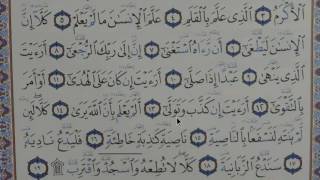 ٱلْأَكْرَمُ ٣ ٱلَّذِى عَلَّمَ بِٱلْقَلَمِ ٤ عَلَّمَ ٱلْإِنسَٰنَ مَا لَمْ يَعْلَمْ ٥ كَلَّآ إِنَّ
ٱلْإِنسَٰنَ لَيَطْغَىٰٓ ٦ أَن رَّءَاهُ ٱسْتَغْنَىٰٓ ٧ إِنَّ إِلَىٰ رَبِّكَ ٱلرُّجْعَىٰٓ ٨ أَرَءَيْتَ
ٱلَّذِى يَنْهَىٰ ٩ عَبْدًا إِذَا صَلَّىٰٓ ١٠ أَرَءَيْتَ إِن كَانَ عَلَى ٱلْهُدَىٰٓ ١١ أَوْ أَمَرَ
بِٱلتَّقْوَىٰٓ ١٢ أَرَءَيْتَ إِن كَذَّبَ وَتَوَلَّىٰٓ ١٣ أَلَمْ يَعْلَم بِأَنَّ ٱللَّهَ يَرَىٰ ١٤ كَلَّا لَئِن
لَّمْ يَنتَهِ لَنَسْفَعًۢا بِٱلنَّاصِيَةِ ١٥ نَاصِيَةٍ كَٰذِبَةٍ خَاطِئَةٍ ١٦ فَلْيَدْعُ نَادِيَهُۥ
١٧ سَنَدْعُ ٱلزَّبَانِيَةَ ١٨ كَلَّا لَا تُطِعْهُ وَٱسْجُدْ وَٱقْتَرِب ۩ ١٩